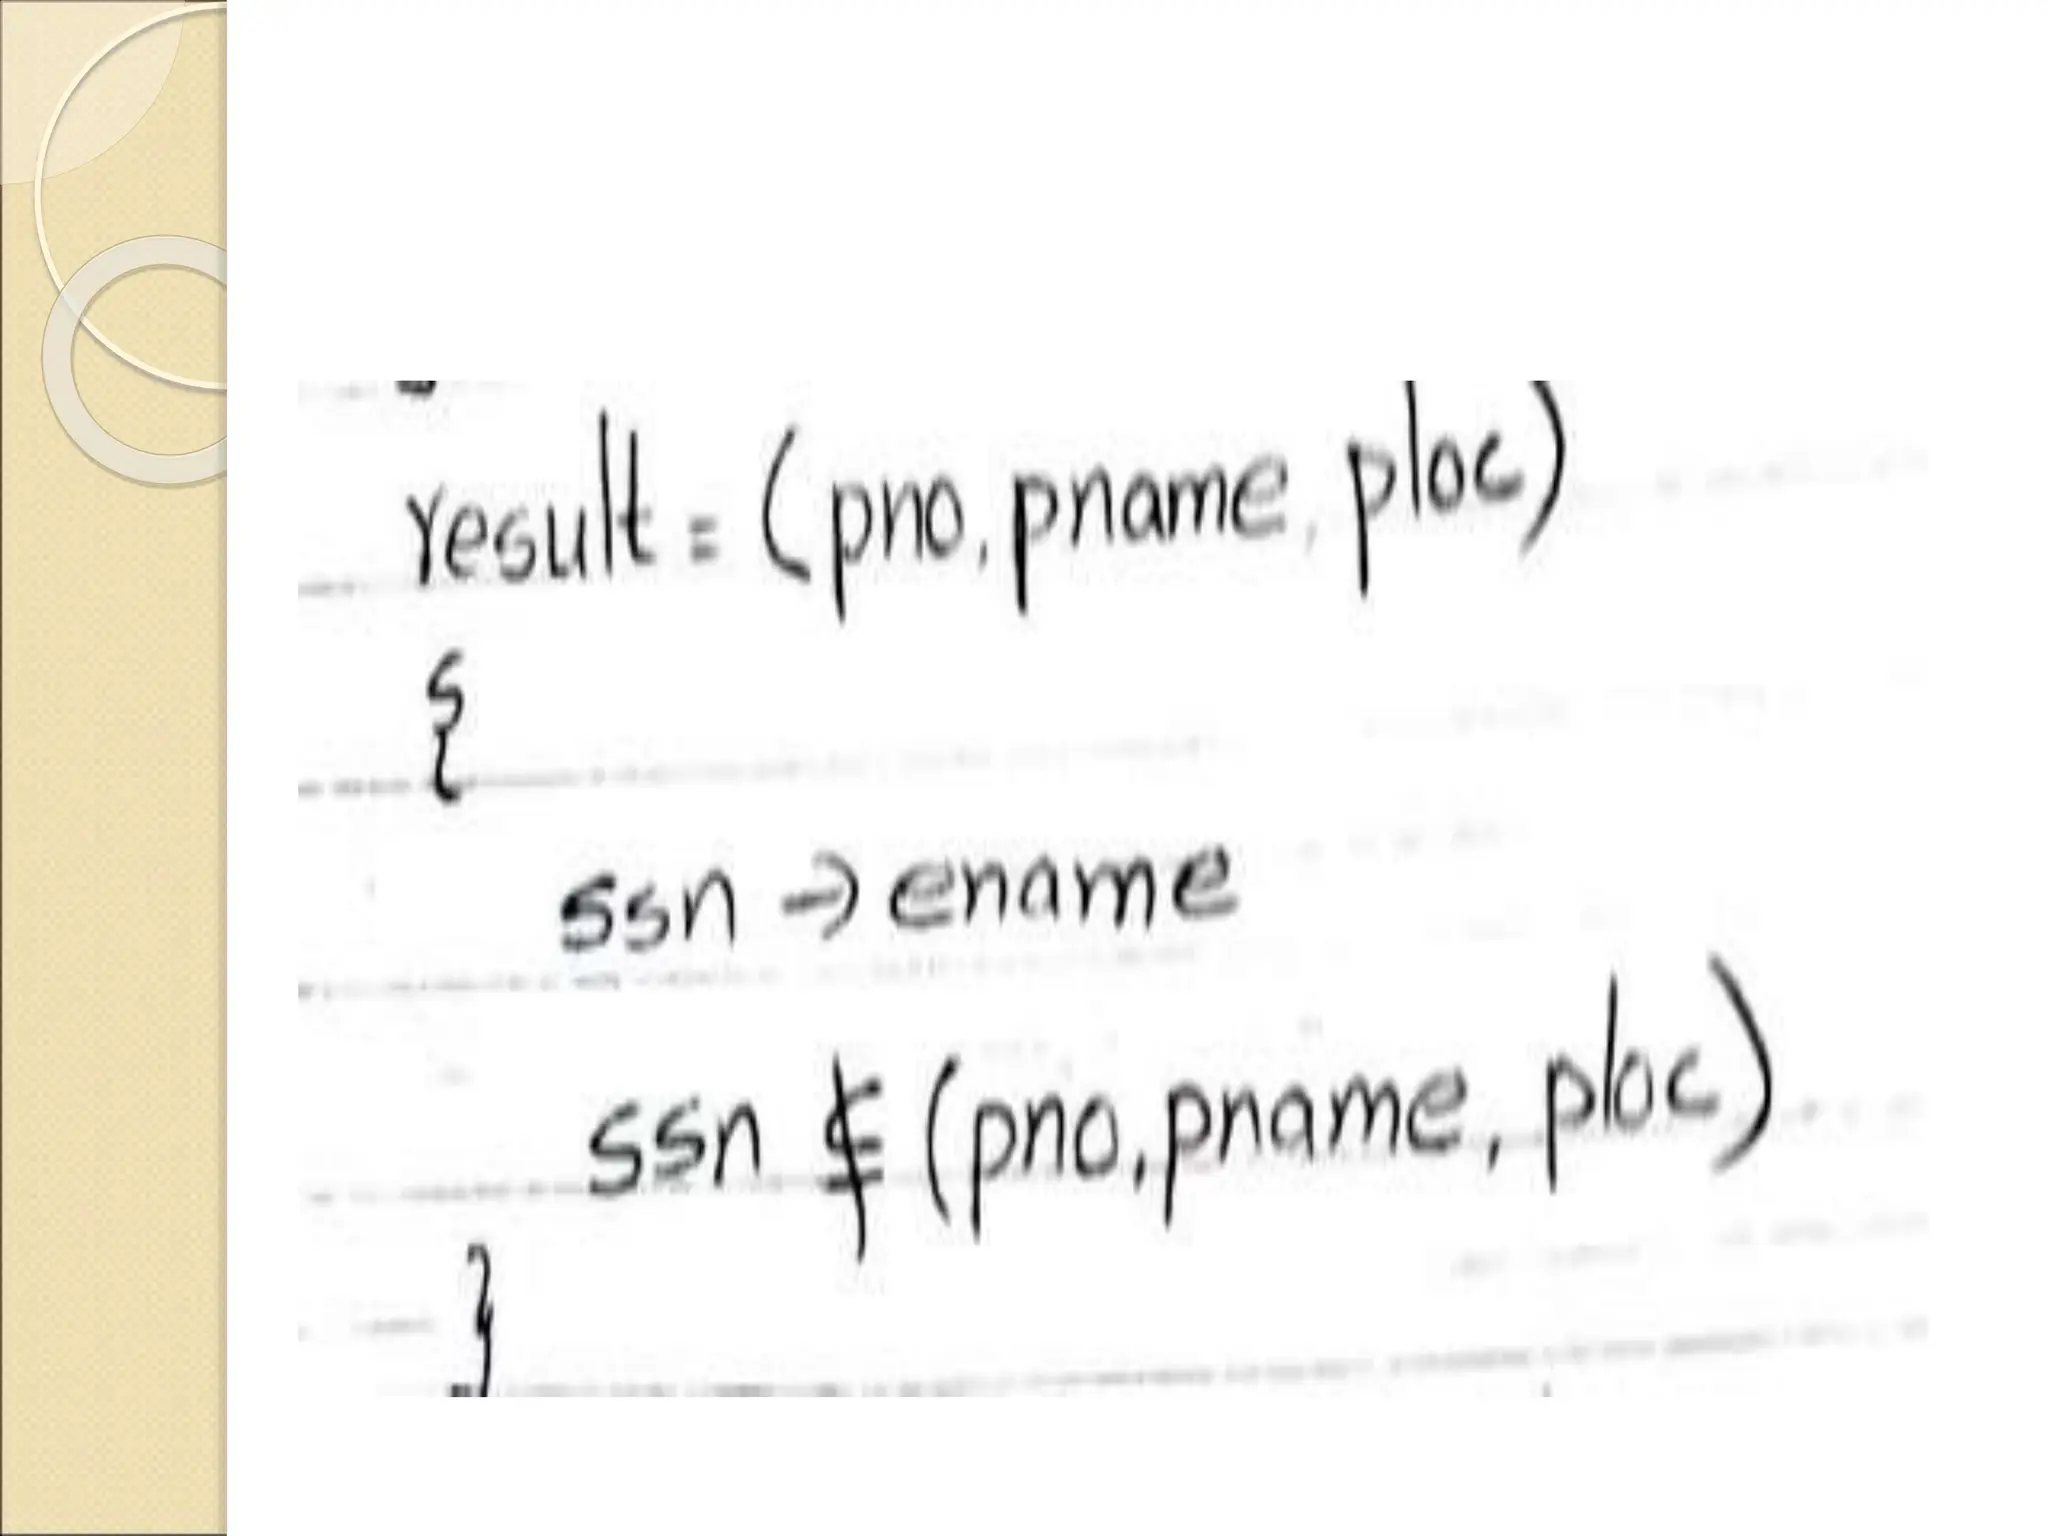 result = (pno, pname, ploc)
{
ssn → ename
ssn ⊈ (pno, pname, ploc)
}